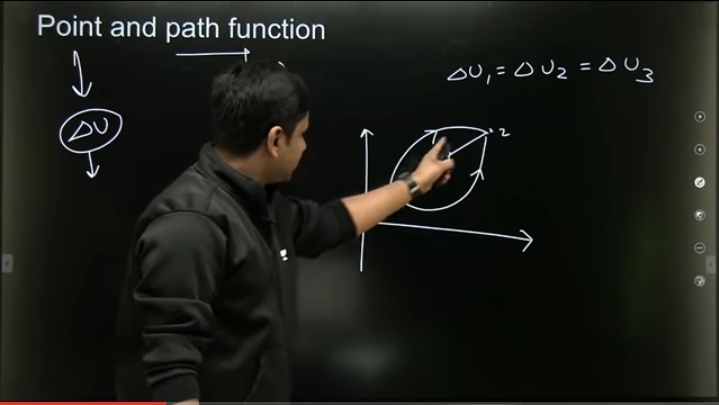 Point and path function
ΔU₁ = ΔU₂ = ΔU₃
ΔU
2